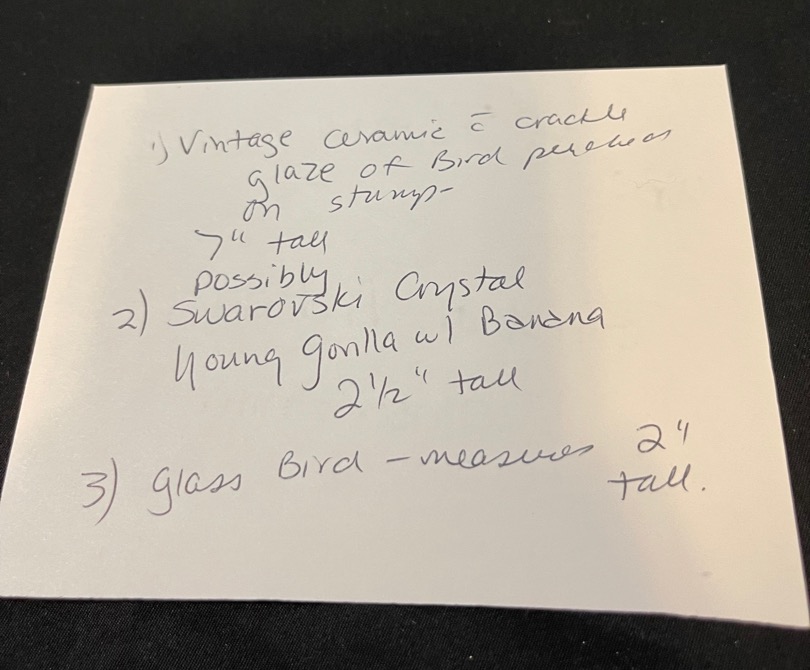 1) Vintage ceramic c̄ crackle
glaze of Bird perched
on stump-
7" tall
possibly
2) Swarovski Crystal
Young gorilla w/ Banana
2 1/2" tall
3) glass Bird - measures 2"
tall.